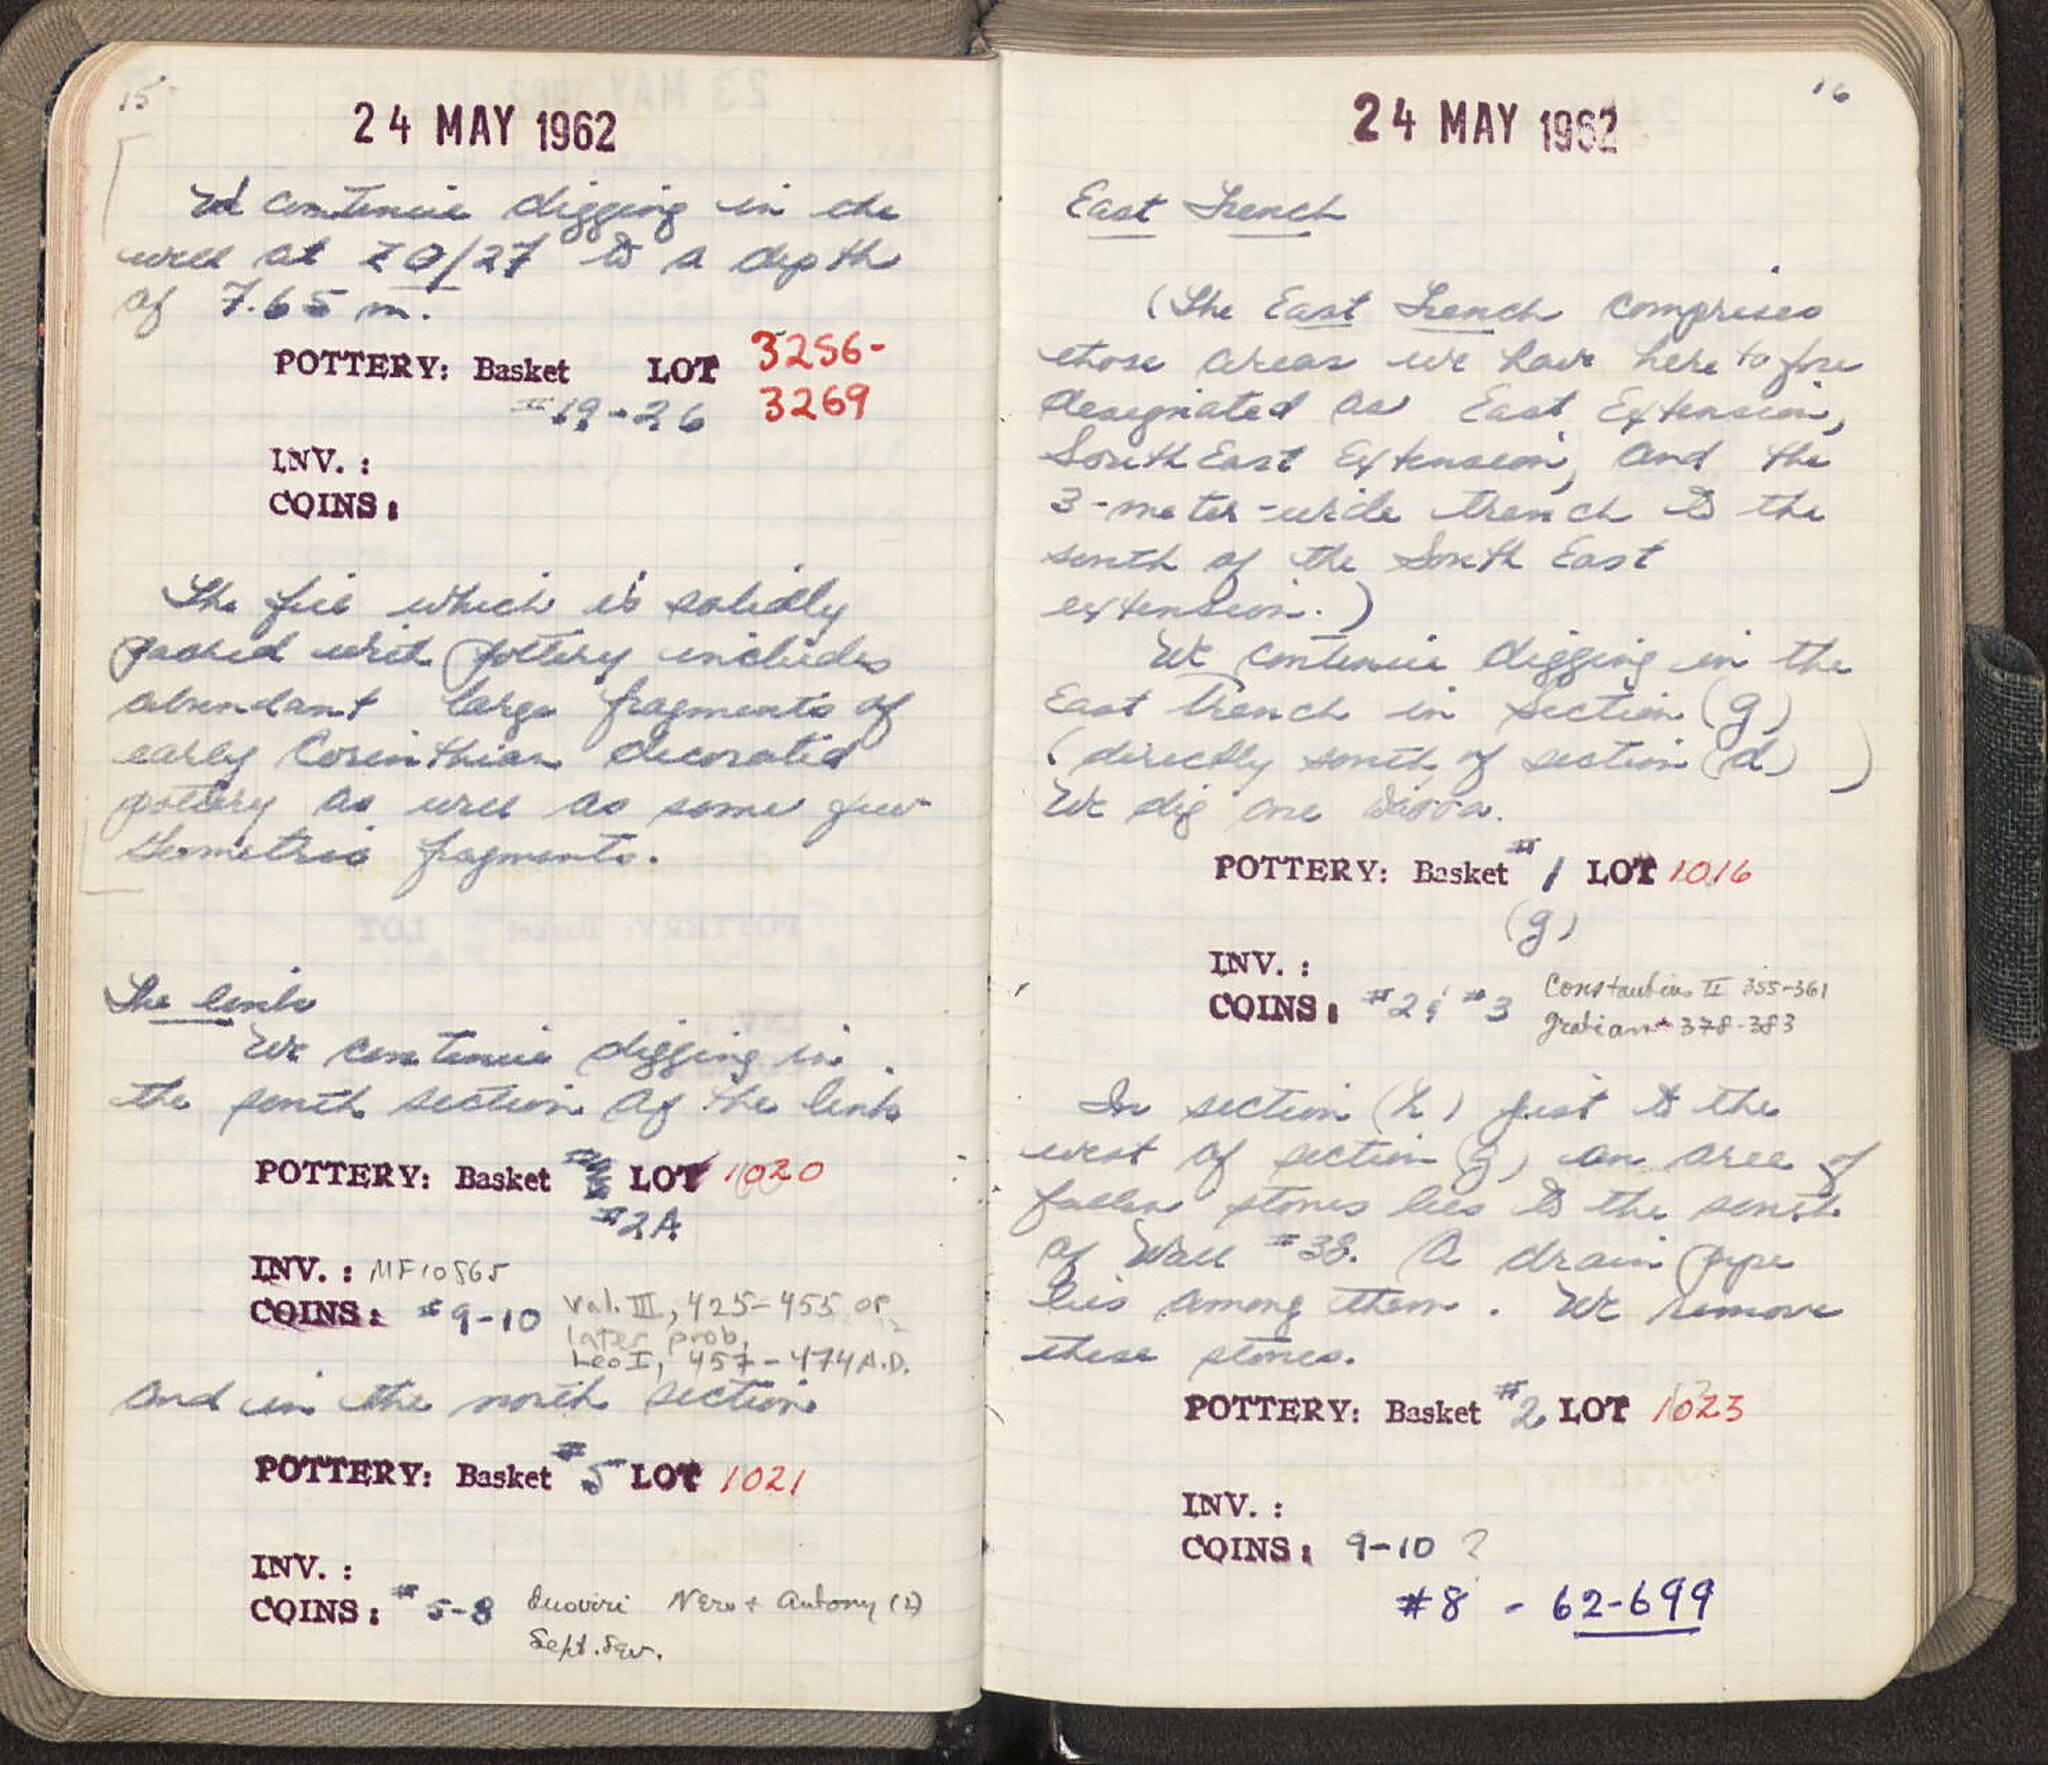 15
24 MAY 1962
We continue digging in the
well at Z0/27 to a depth
of 7.65 m.
POTTERY: Basket LOT 3256-
#19-26 3269
INV. :
COINS:
The fill which is solidly
packed with pottery includes
abundant large fragments of
early Corinthian decorated
pottery as well as some few
Geometric fragments.
The link
We continue digging in
the south section of the link
POTTERY: Basket LOT 1020
#2A
INV. : MF10565
COINS: #9-10 Val. III, 425-455 or
later prob.
Leo I, 457-474 A.D.
and in the north section
POTTERY: Basket #5 LOT 1021
INV. :
COINS: #5-8 Duoviri Nero + Antony (2)
Sept. Sev.
16
24 MAY 1962
East Trench
(The East Trench comprises
those areas we have here to fore
designated as East Extension,
South East Extension, and the
3-meter-wide trench to the
south of the South East
extension.)
We continue digging in the
East Trench in Section (g)
(directly south of section (d) )
We dig one
POTTERY: Basket #1 LOT 1016
(g)
INV. :
COINS: #2; #3 Constantius II 355-361
Gratian 378-383
In section (h) just to the
west of section (g) an area of
fallen stones lies to the south
of Wall #38. A drain pipe
lies among them. We remove
these stones.
POTTERY: Basket #2 LOT 1023
INV. :
COINS: 9-10 ?
#8 - 62-699